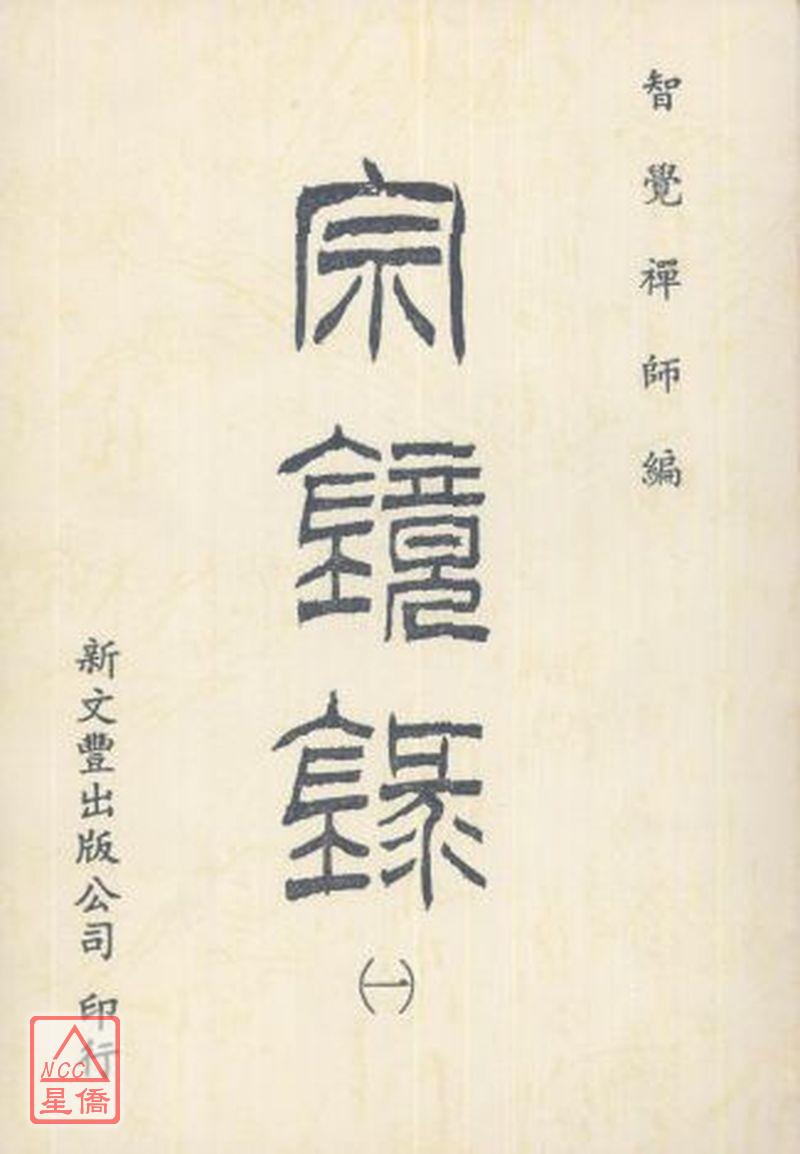 智覺禪師編
宗鏡錄
(一)
新文豐出版公司 印行
NCC
星僑